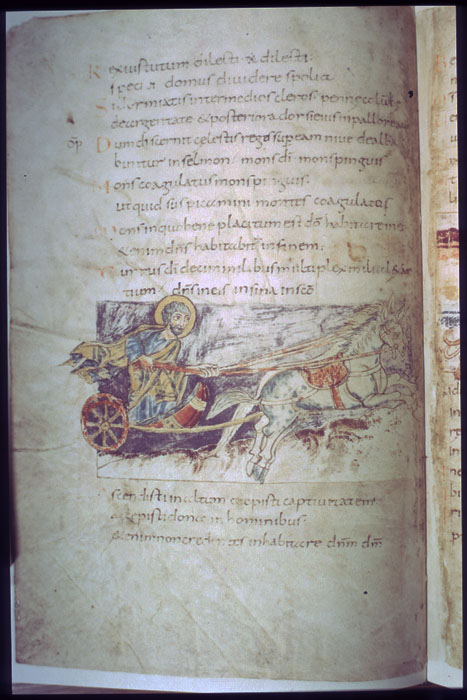 Rex virtutum dilecti & dilecti
speciei domus dividere spolia
Si dormiatis inter medios cleros pennę columbę
deargentatę & posteriora dorsi eius in pallore auri
Dum discernit celestis reges super eam nive dealba
buntur in selmon mons dī mons pinguis
Mons coagulatus mons pinguis
ut quid suspicamini montes coagulatos
Mons in quo bene placitum est dō habitare in eo
&enim dns habitabit in finem
Currus dī decem milibus multiplex milia l&an
tium dns in eis in sina in scō
scendisti in altum coepisti captivitatem
accepisti dona in hominibus
&enim non credentes inhabitare dnm dm